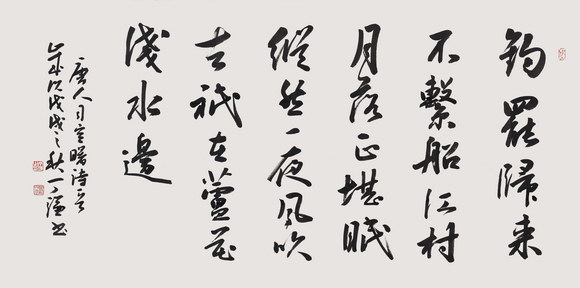 釣罷歸来
不繫船江村
月落正堪眠
縱然一夜風吹
去祇在蘆花
淺水邊
唐人司空曙詩一首
歲次戊戌之秋